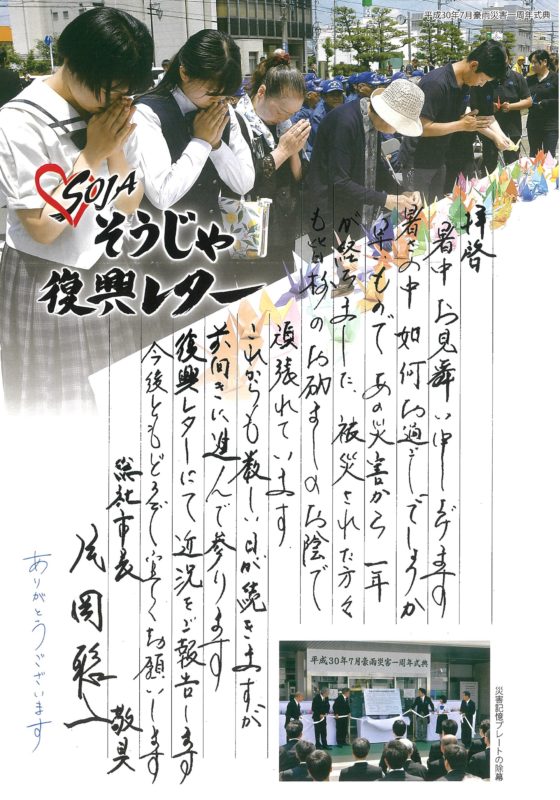 平成30年7月豪雨災害一周年式典
SOJA
そうじゃ
復興レター
拝啓
暑中お見舞い申し上げます
暑さの中如何お過ごしでしょうか
早いもので あの災害から 一年
が経ちました。被災された方々
も皆様のお励ましのお陰で
頑張れています
これからも厳しい日が続きますが
前向きに進んで参ります
復興レターにて近況をご報告します
今後ともどうぞ宜しくお願いします
敬具
総社市長
片岡聡一
ありがとうございます
平成30年7月豪雨災害一周年式典
災害記憶プレートの除幕